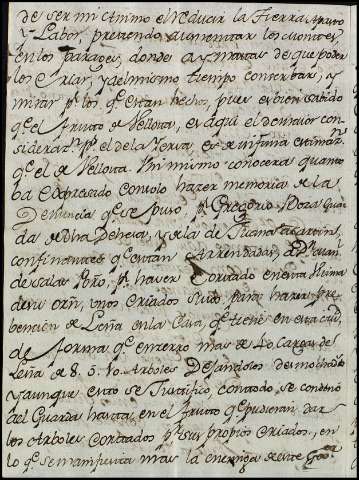 de ser mi Animo el reducir la Tierra, a puro
y Labor, pretendo aumentar los montes
en los parages, donde ay matas de que poder
los Criar, y al mismo tiempo conserbar, y
mirar pr. los qe. estan hechos, pues es bien sabido
qe. el fruto de Vellota, es aqui el de maior con
siderazn. pr. el de la Yerva, es de infima estimazn.
qe. el de Vellota. Asi mismo conocera quanto
ba expresado con solo hazer memoria de la
Denuncia qe. se puso pr. Gregorio Doza Guar
da de dha Dehesa, y de la de Juana
confinantes qe. estan Arrendadas, a Dn. Juan
de Salas pr. haver Cortado en esta ultima
de su orn, unos criados suios para hazer pre
bencion de Leña en la Casa, qe. tiene en esta ciud.
de forma qe. encerro mas de 40 Cargas de
Leña de 8. 5. Vo. Arboles Dejandolos desmochados
y aunque esto se Justifico, contodo se condeno
al Guarda hasta en el fruto qe. pudieran dar
los Arboles cortados pr. sus propios criados, en
lo qe. se manifiesta mas la enemiga de este